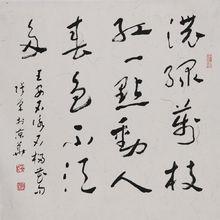 濃綠萬枝
紅一點動人
春色不須
多
王安石詠石榴花句
於京華